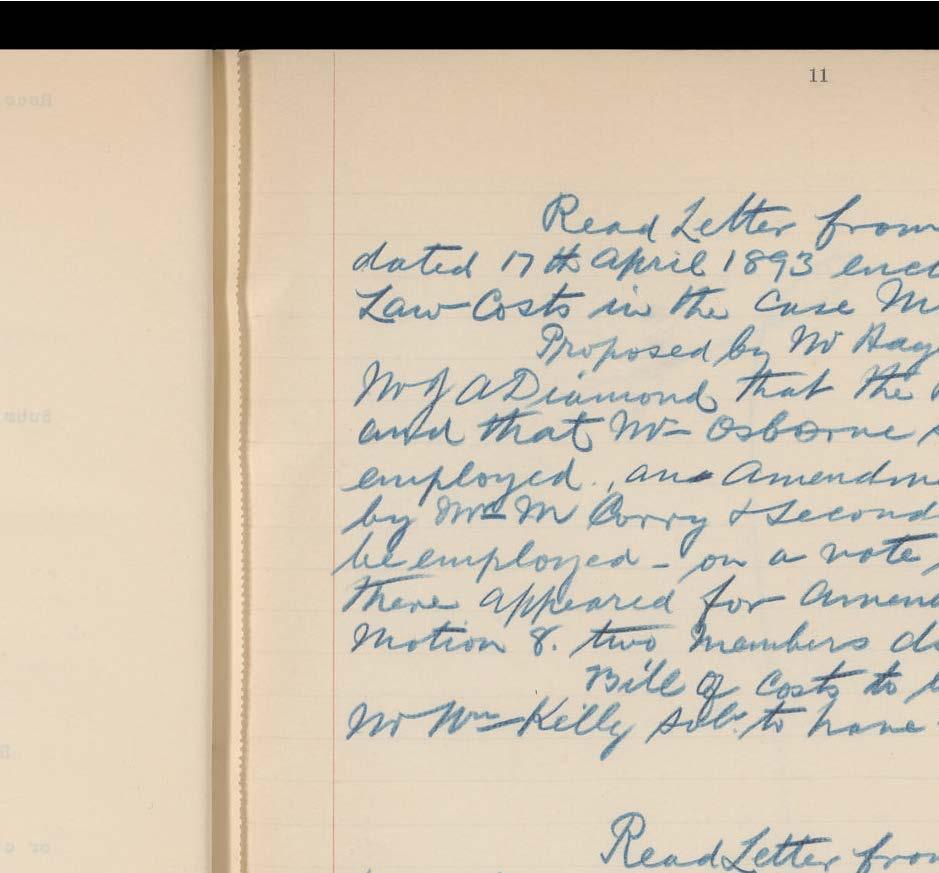 11
Read Letter from
dated 17th April 1893 encl
Law Costs in the Case M
Proposed by Mr Hay
Mr J A Diamond that the
and that Mr Osborne
employed., an Amendm
by Mr M Corry & Second
be employed - on a vote
there appeared for Amend
Motion 8. two Members d
Bill of Costs to b
Mr Wm Kelly Solr. to have
Read Letter from